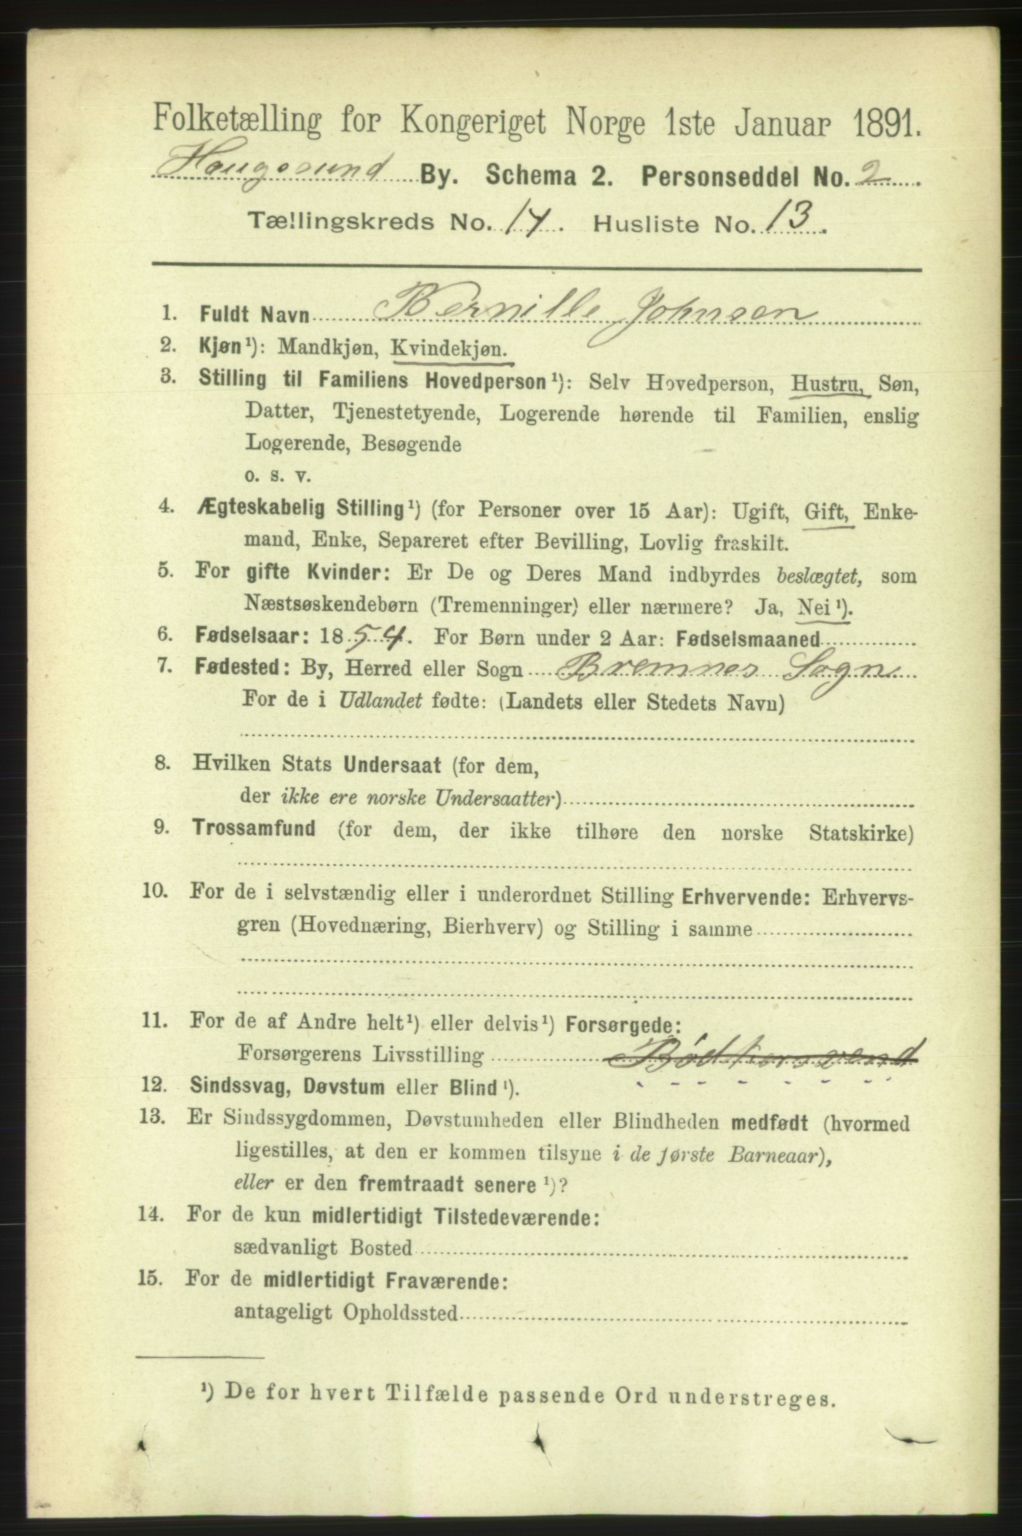 Folketælling for Kongeriget Norge 1ste Januar 1891.
Haugesund By. Schema 2. Personseddel No. 2.
Tællingskreds No. 14. Husliste No. 13.
1. Fuldt Navn Bernille Johnsen
2. Kjøn¹): Mandkjøn, Kvindekjøn.
3. Stilling til Familiens Hovedperson¹): Selv Hovedperson, Hustru, Søn,
Datter, Tjenestetyende, Logerende hørende til Familien, enslig
Logerende, Besøgende
o. s. v.
4. Ægteskabelig Stilling¹) (for Personer over 15 Aar): Ugift, Gift, Enke-
mand, Enke, Separeret efter Bevilling, Lovlig fraskilt.
5. For gifte Kvinder: Er De og Deres Mand indbyrdes beslægtet, som
Næstsøskendebørn (Tremenninger) eller nærmere? Ja, Nei¹).
6. Fødselsaar: 1854. For Børn under 2 Aar: Fødselsmaaned
7. Fødested: By, Herred eller Sogn Bremnes Sogn
For de i Udlandet fødte: (Landets eller Stedets Navn)
8. Hvilken Stats Undersaat (for dem,
der ikke ere norske Undersaatter)
9. Trossamfund (for dem, der ikke tilhøre den norske Statskirke)
10. For de i selvstændig eller i underordnet Stilling Erhvervende: Erhvervs-
gren (Hovednæring, Bierhverv) og Stilling i samme
11. For de af Andre helt¹) eller delvis¹) Forsørgede:
Forsørgerens Livsstilling Bødkersvend
12. Sindssvag, Døvstum eller Blind¹).
13. Er Sindssygdommen, Døvstumheden eller Blindheden medfødt (hvormed
ligestilles, at den er kommen tilsyne i de første Barneaar),
eller er den fremtraadt senere¹)?
14. For de kun midlertidigt Tilstedeværende:
sædvanligt Bosted
15. For de midlertidigt Fraværende:
antageligt Opholdssted
¹) De for hvert Tilfælde passende Ord understreges.